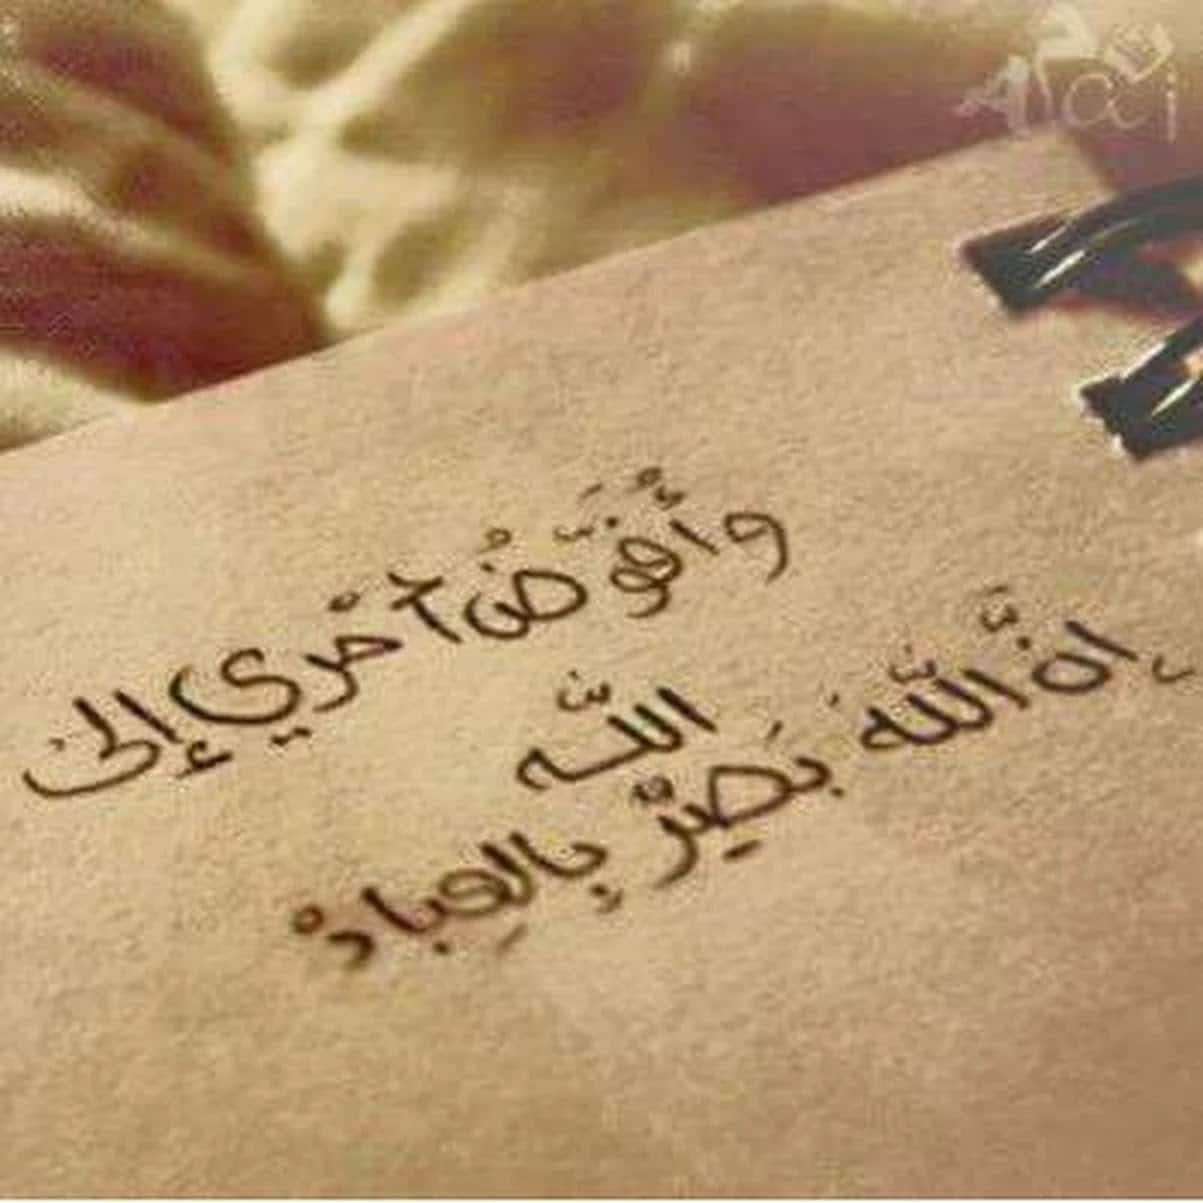 وَأُفَوِّضُ أَمْرِي إِلَى
اللَّه
إِنَّ اللَّهَ بَصِيرٌ بِالعِبادْ